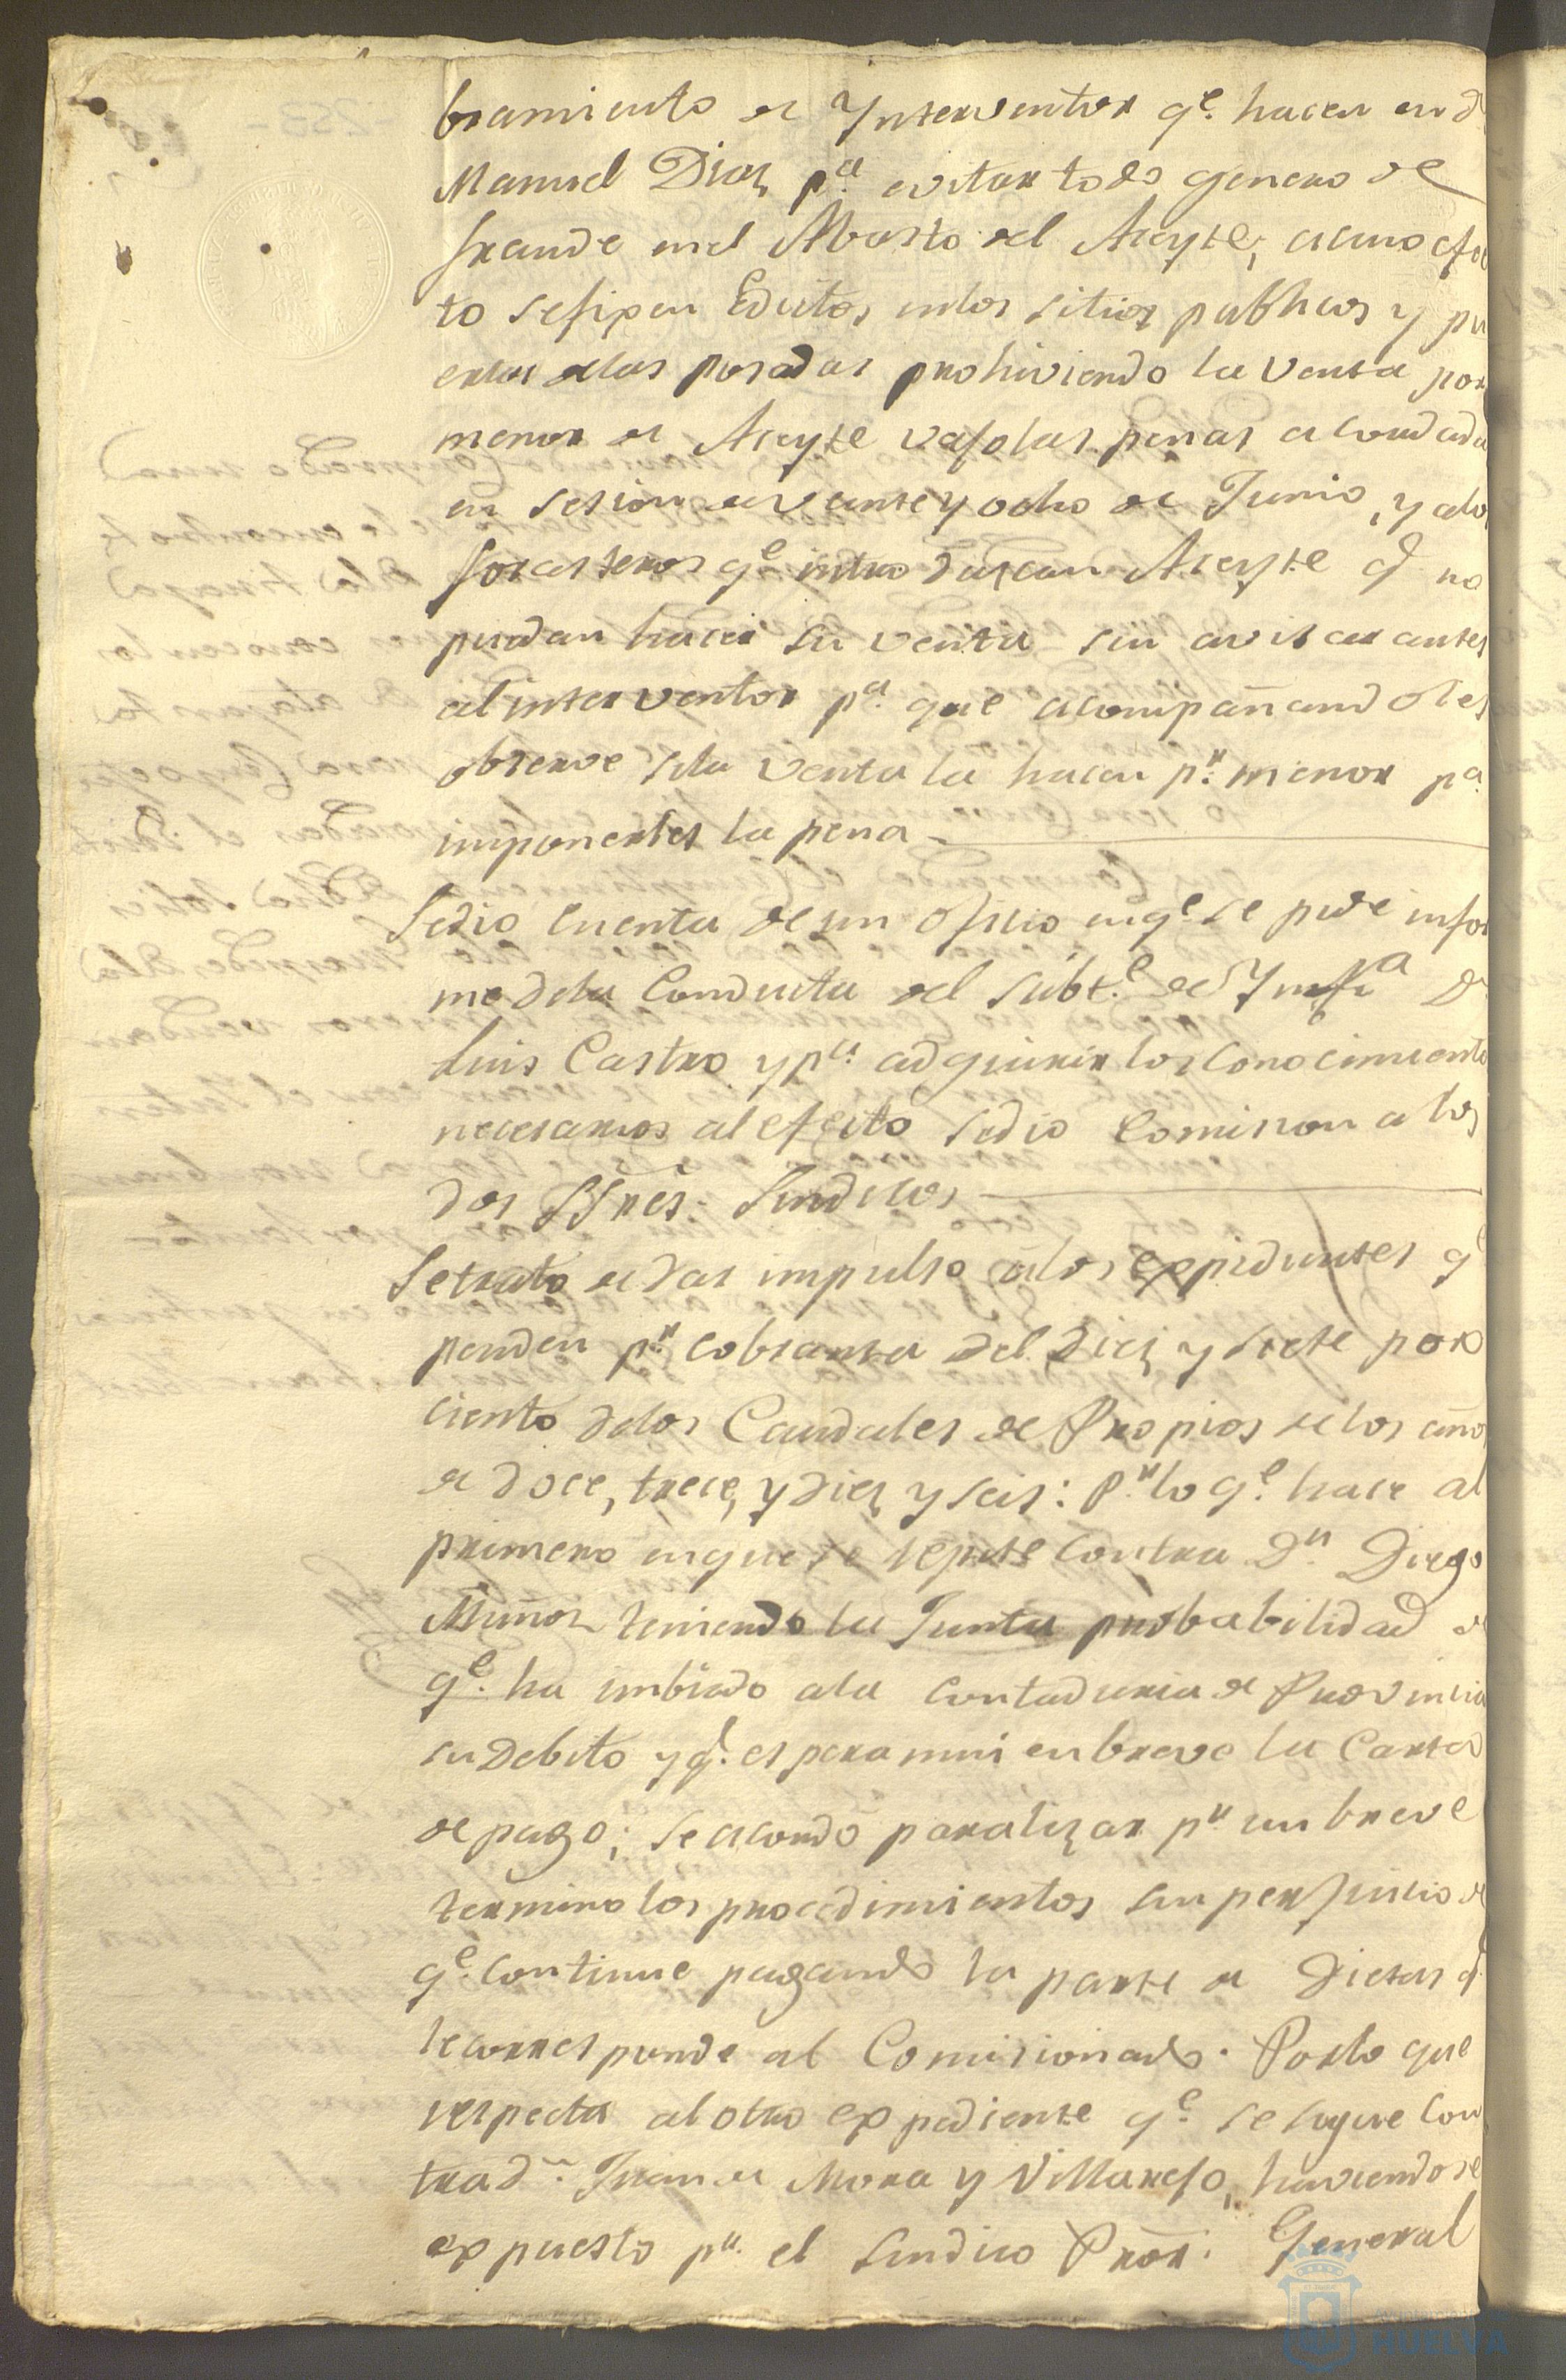 bramiento de Ynterventor qe. hacen en Dn
Manuel Diaz pa. evitar todo genero de
fraude en el Abasto del Aceyte, a cuio efec
to se fixen Edictos en los sitios publicos y pu
ertas de las posadas prohiviendo la venta por
menor de Aceyte vajo las penas acordadas
en sesion de veinte y ocho de Junio, y a los
forasteros qe. introduscan Aceyte q no
puedan hacer su venta sin avisar antes
al interventor pa. que acompañandoles
observe si la venta la hacen pr. menor pa.
imponerles la pena
Se dio cuenta de un oficio en qe. se pide infor
me de la Conducta del Subte. de Ynfa Dn
Luis Castro y pa. adquirir los conocimientos
necesarios al efecto se dio Comision a los
dos SSres. Sindicos
Se trato de dar impulso a los expedientes qe
penden pr. cobransa del Diez y siete por
ciento de los Caudales de Propios de los años
de doce, trece, y diez y seis: Pr. lo qe. hace al
primero en que se repite contra Dn. Diego
Muñoz teniendo la Junta probabilidad de
qe. ha imbiado a la Contaduria de Provincia
su Debito y q. espera mui en breve la Carta
de pago; se acordo paralizar pr. un breve
termino los procedimientos sin perjuicio de
qe. continue pagando la parte de Dietas q.
le corresponde al Comisionado. Por lo que
respecta al otro expediente qe. se sigue con
tra Dn. Juan de Mora y Villarejo, haviendose
expuesto pr. el Sindico Pror. General
HUELVA